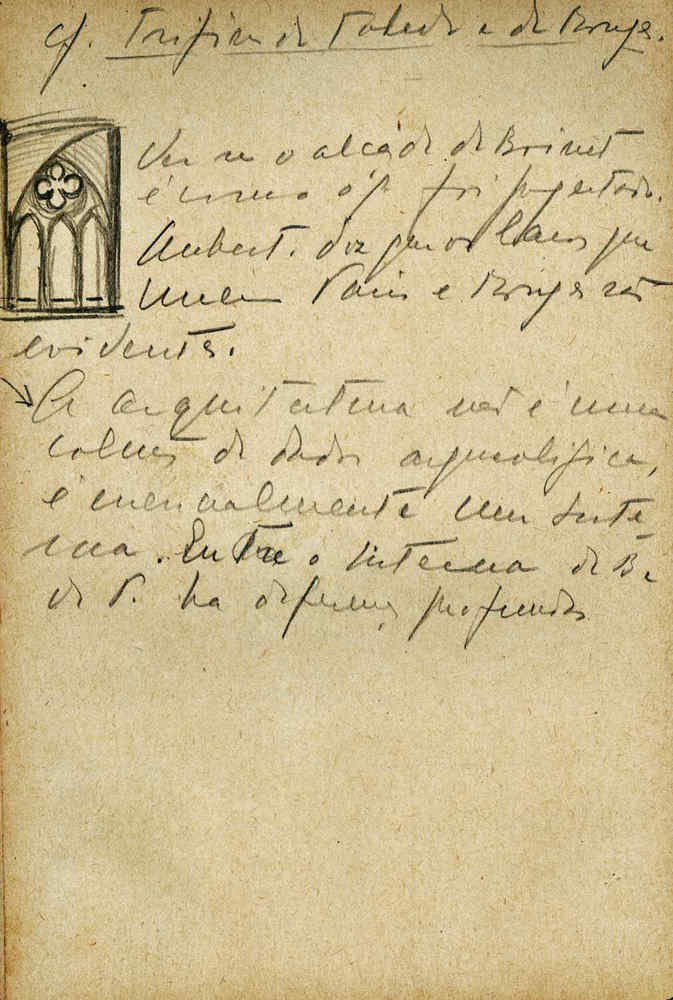 cf. Trifório de Toledo e de Bourges.
Ver se o alçado de Brinet
é como o q. foi sugestado.
Aubert. diz que os laços que
unem Paris e Bourges são
evidentes.
A arquitectura não é uma
colecção de dados arqueológicos,
é essencialmente um siste-
ma. Entre o sistema de B. e
de P. ha diferenças profundas